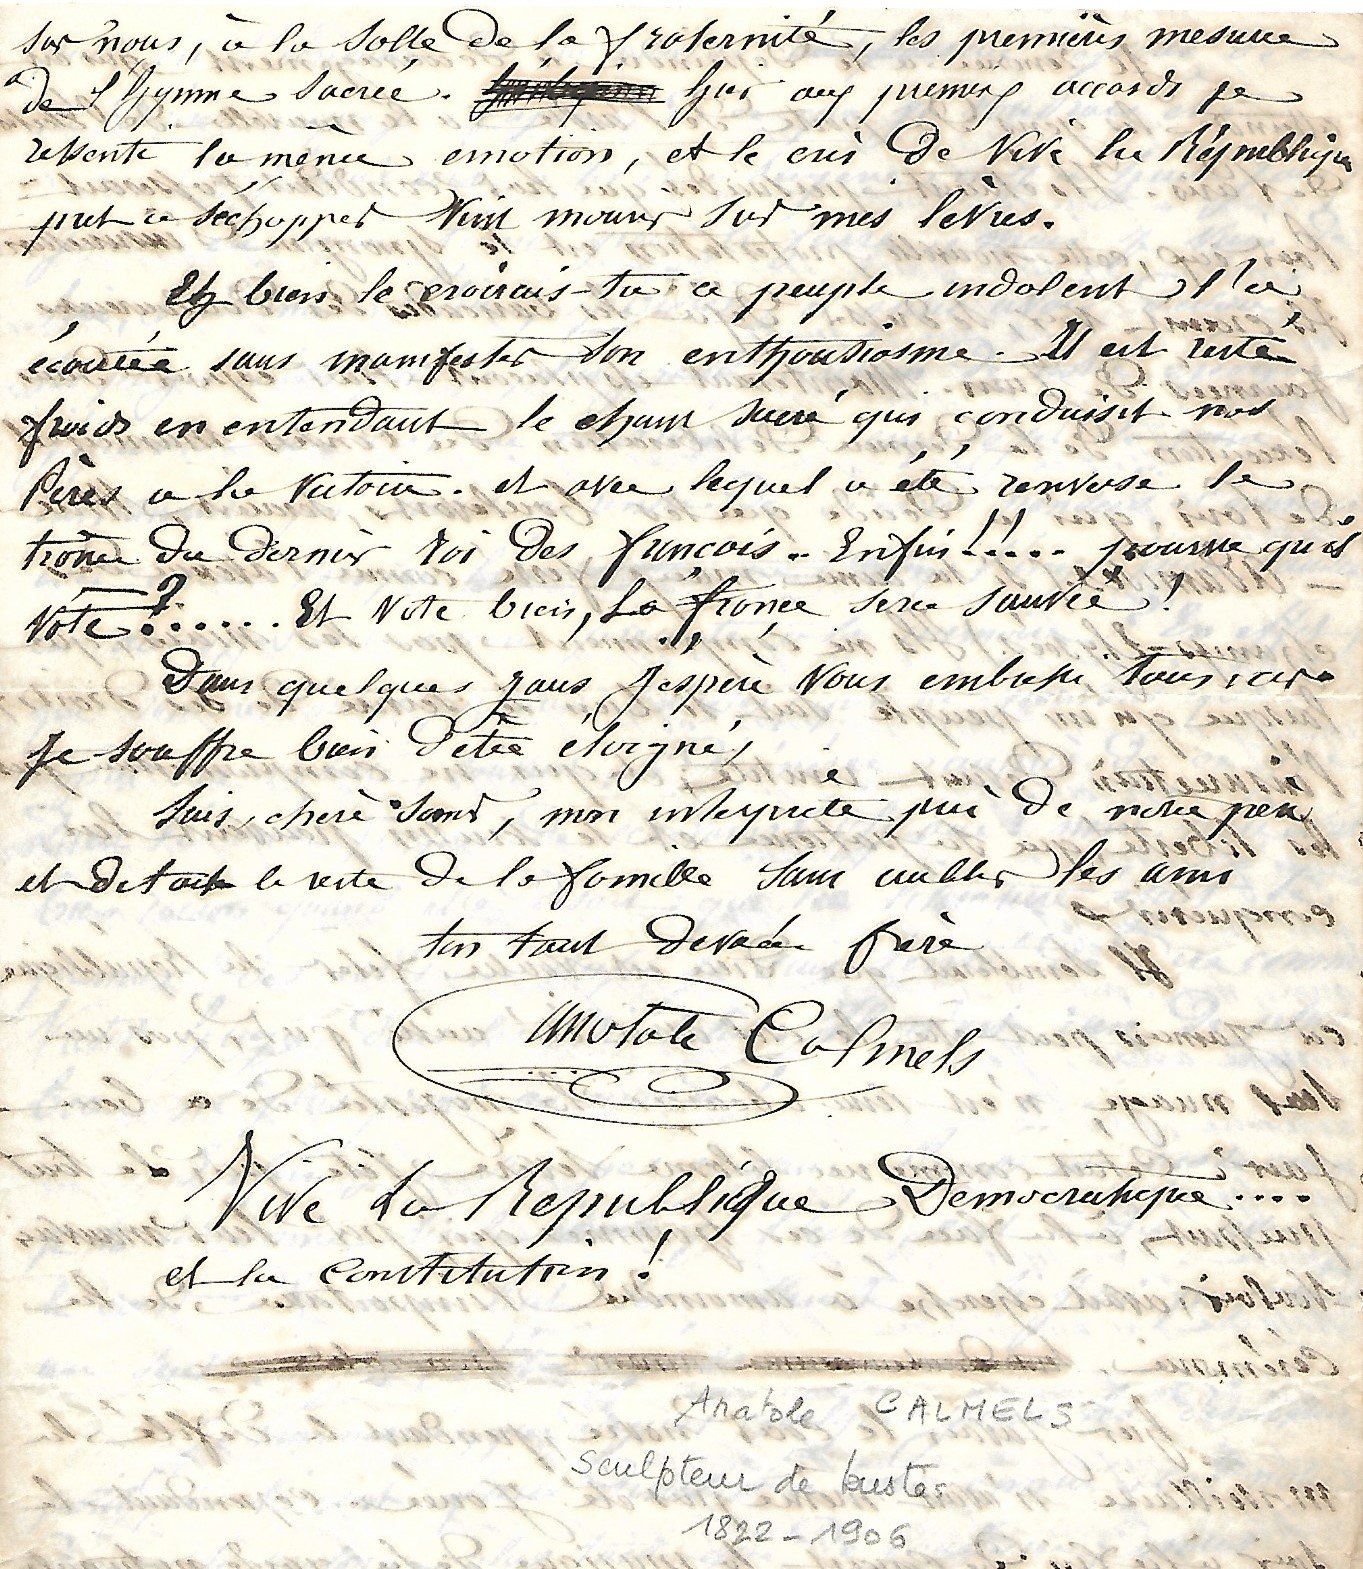 sur nous, à la Salle de la fraternité, les premières mesure
de l'hymne sacrée. hier aux premiers accords je
ressenti la même emotion, et le cris de Vive la République
pret a s'échapper Vint mourir sur mes lèvres.
Eh bien le croirais-tu ce peuple indolent l'a
écoutée sans manifester son enthousiasme. Il est resté
froids en entendant le chant sacré qui conduisit nos
Pères a la Victoire. et avec lequel a été renverse le
trône du dernier roi des françois.. Enfin!!.... pourvu qu'il
Vote?...... Et Vote bien, La france sera sauvée!
Dans quelques jours J'espère Vous embrasser tous, car
Je souffre bien d'être éloigné,
Sois, chère Sœur, mon interprete près de notre père
et de tout le reste de la famille sans oublier les amis
ton tout devoué frère
Anatole Calmels
Vive La Republique Democratique....
et la Constitution!
Anatole CALMELS
Sculpteur de bustes
1822-1906